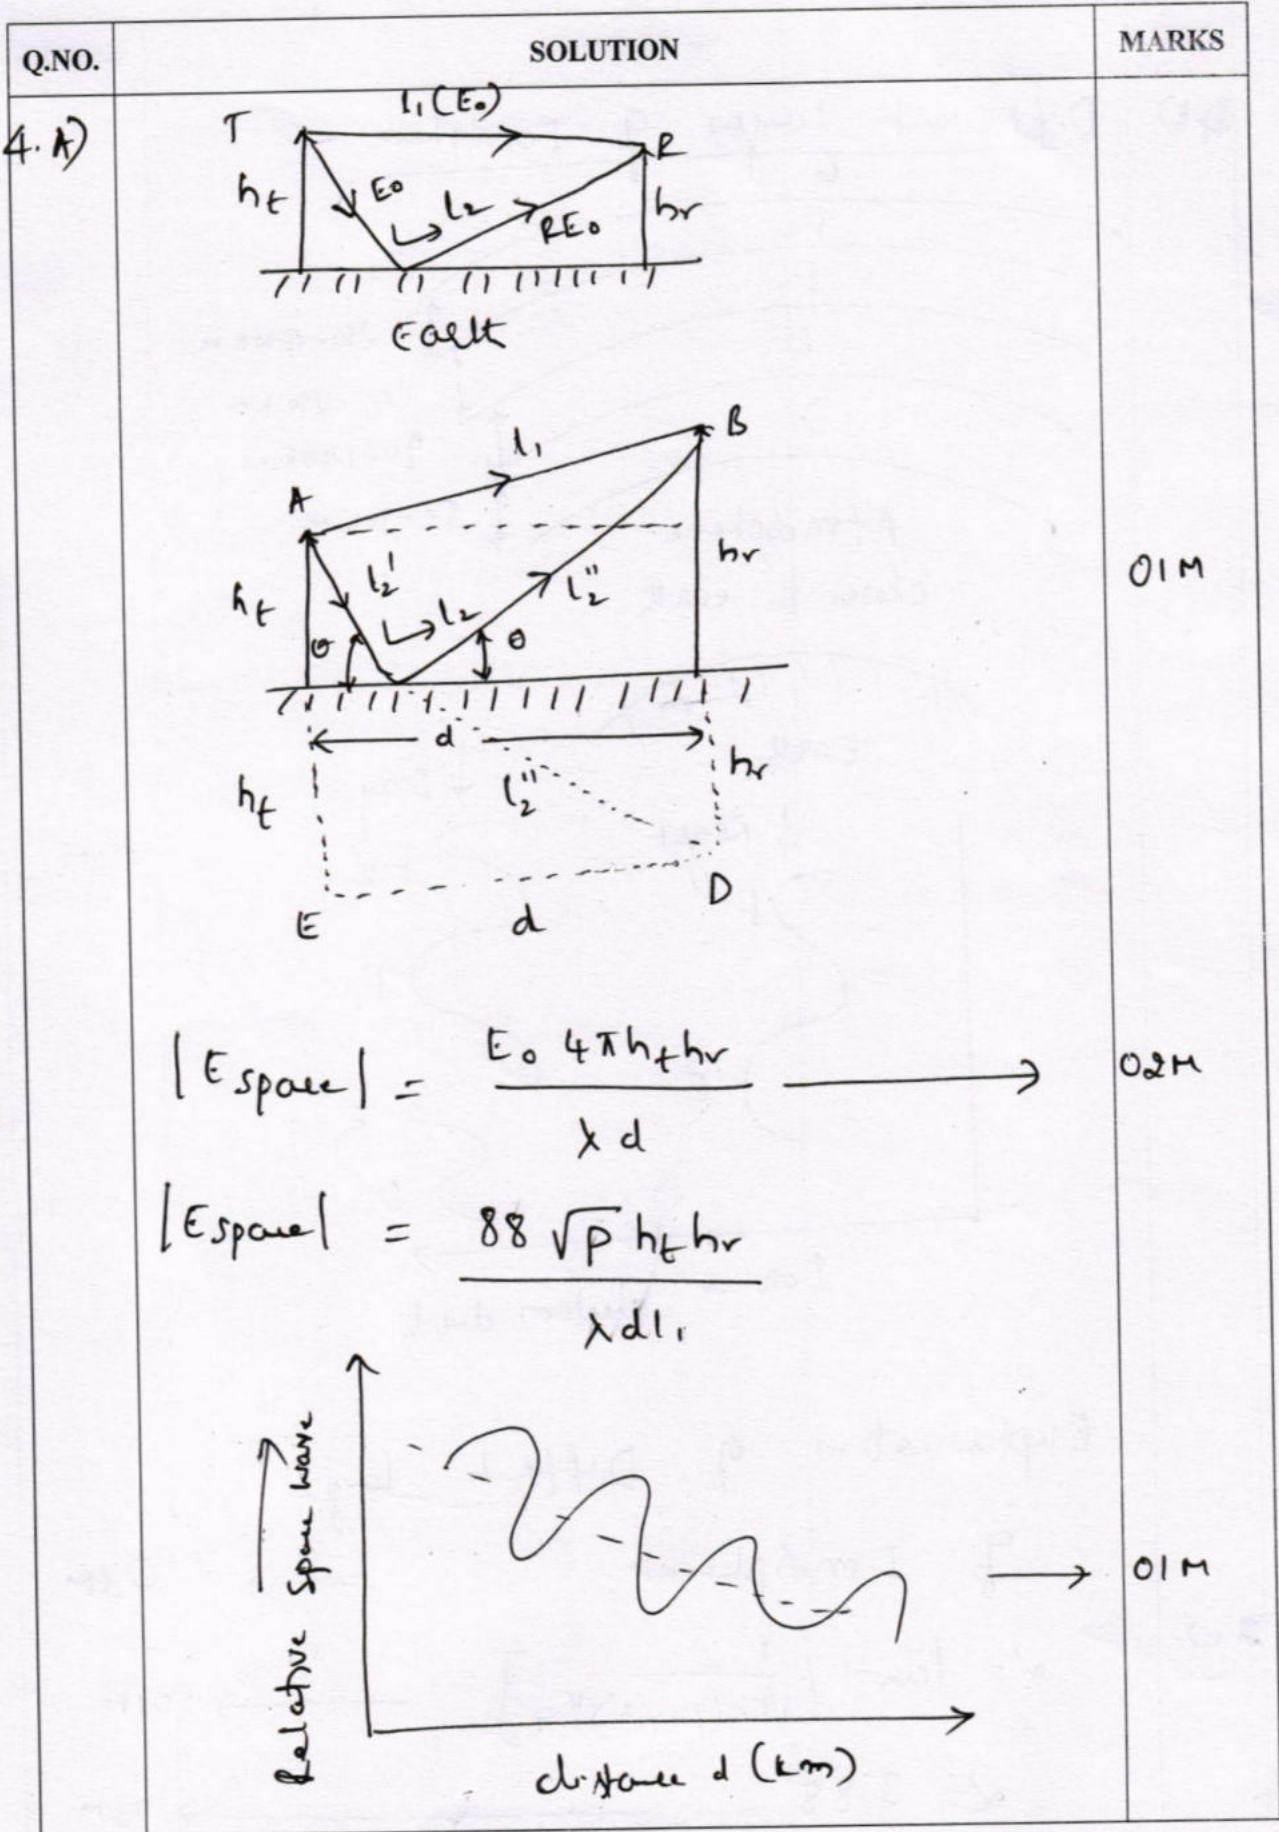 Q.NO. SOLUTION MARKS
4. A)
l₁ (E₀)
T R
hₜ E₀ l₂ RE₀ hᵣ
Earth
B
l₁
A
hₜ l₂' l₂ l₂'' hᵣ 01M
θ θ
d
hₜ l₂'' hᵣ
E d D
|Espace| = E₀ 4πhₜhᵣ / λd → 02M
|Espace| = 88 √p hₜ hᵣ / λdl₁
Relative Space wave
→ 01M
distance d (km)